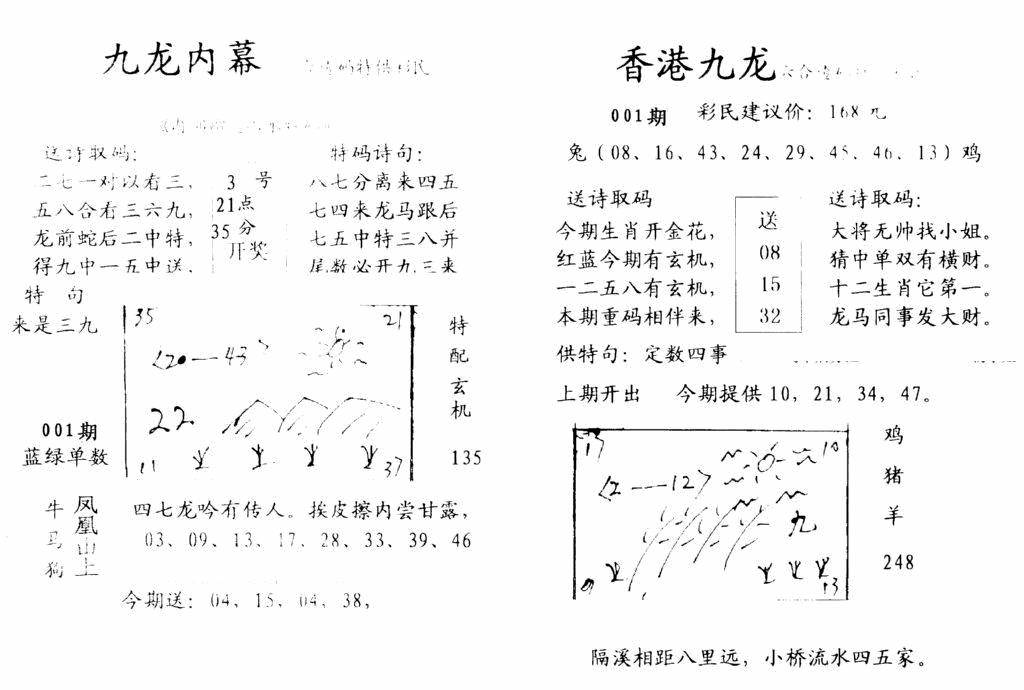 九龙内幕
送诗取码：
二七一对以看三，
五八合看三六九，
龙前蛇后二中特，
得九中一五中送，
3号
21点
35分
开奖
特码诗句：
八七分离来四五
七四来龙马跟后
七五中特三八并
尾数必开九三来
特 句
来是三九
001期
蓝绿单数
35
21
〈20—43〉
22
11
37
特配玄机
135
牛马狗
凤凰山上
四七龙吟有传人。挨皮擦内尝甘露，
03、09、13、17、28、33、39、46
今期送：04，15，04，38，
香港九龙
001期 彩民建议价：168元
兔（08、16、43、24、29、45、46、13）鸡
送诗取码
今期生肖开金花，
红蓝今期有玄机，
一二五八有玄机，
本期重码相伴来，
送
08
15
32
送诗取码：
大将无帅找小姐。
猜中单双有横财。
十二生肖它第一。
龙马同事发大财。
供特句：定数四事
上期开出 今期提供10，21，34，47。
17
10
〈2—12〉
九
9
13
鸡猪羊
248
隔溪相距八里远，小桥流水四五家。